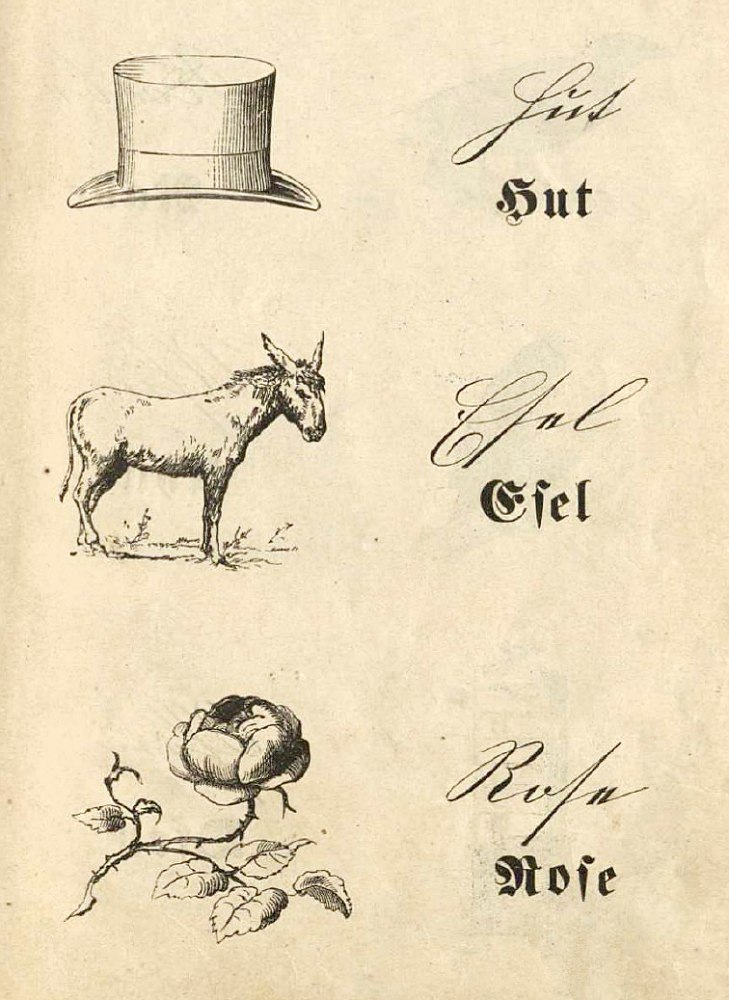 Hut
Hut
Eſel
Eſel
Roſe
Roſe